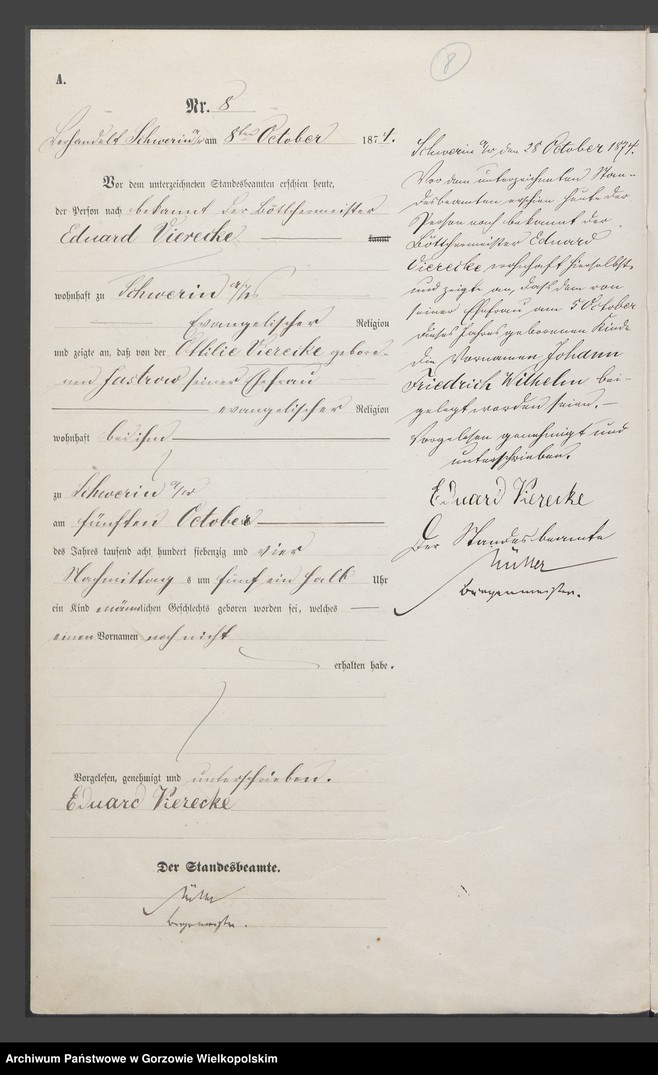 8
A.
Nr. 8
Verhandelt Schwerin a/W am 8ten October 1874.
Vor dem unterzeichneten Standesbeamten erschien heute,
der Person nach bekannt der Böttchermeister
Eduard Vierecke
wohnhaft zu Schwerin a/W
evangelischer Religion
und zeigte an, daß von der Ottilie Vierecke gebore-
nen Jastrow seiner Ehefrau
evangelischer Religion
wohnhaft bei ihm
zu Schwerin a/W
am fünften October
des Jahres tausend acht hundert siebenzig und vier
Nachmittags um fünf ein halb Uhr
ein Kind männlichen Geschlechts geboren worden sei, welches
einen Vornamen noch nicht
erhalten habe.
Vorgelesen, genehmigt und unterschrieben.
Eduard Vierecke
Der Standesbeamte.
Müller
Bürgermeister.
Schwerin a/W, den 28 October 1874.
Vor dem unterzeichneten Stan-
desbeamten erschien heute der
Person nach bekannt der
Böttchermeister Eduard
Vierecke wohnhaft hierselbst
und zeigte an, daß dem von
seiner Ehefrau am 5 October
dieses Jahres geborenen Kinde
die Vornamen Johann
Friedrich Wilhelm bei-
gelegt worden seien.
Vorgelesen genehmigt und
unterschrieben.
Eduard Vierecke
Der Standesbeamte
Müller
Bürgermeister.
Archiwum Państwowe w Gorzowie Wielkopolskim